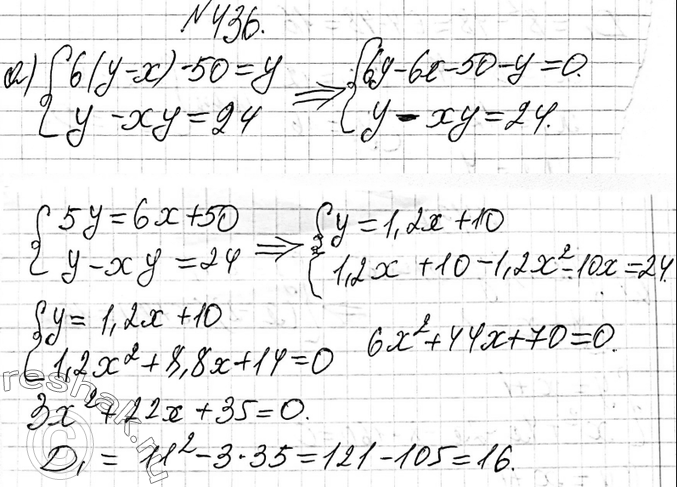 №436.
а) {6(y-x)-50=y ⇒ {6y-6x-50-y=0.
{y-xy=24 {y-xy=24.
{5y=6x+50 ⇒ {y=1,2x+10
{y-xy=24 {1,2x+10-1,2x²-10x=24.
{y=1,2x+10
{1,2x²+8,8x+14=0 6x²+44x+70=0.
3x²+22x+35=0.
D₁=11²-3·35=121-105=16.
reshak.ru